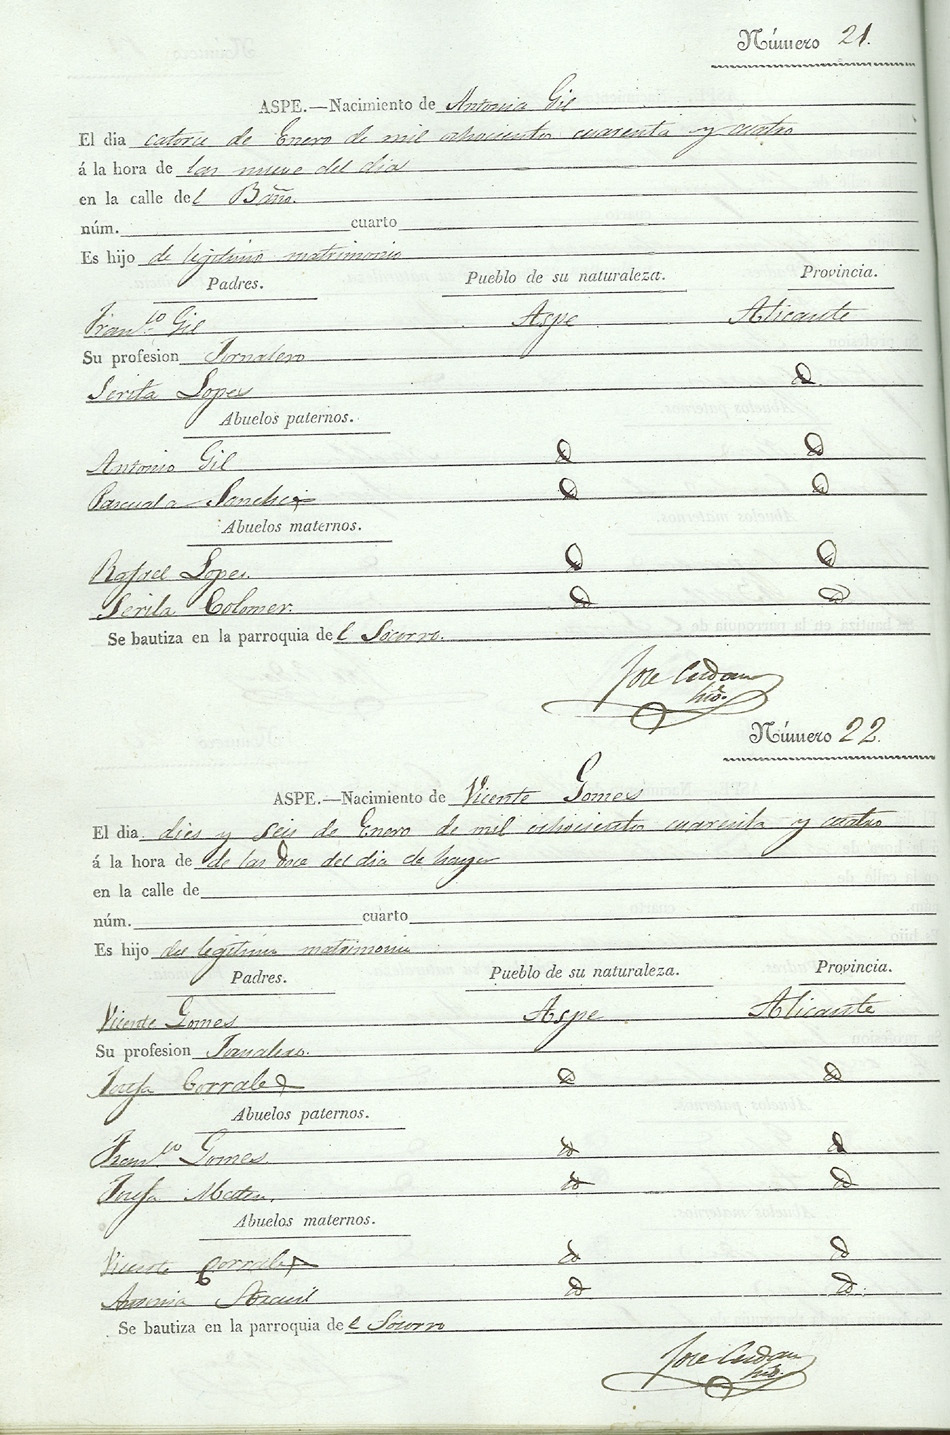 Número 21.
ASPE.—Nacimiento de Antonia Gil
El dia catorce de Enero de mil ochociento cuarenta y cuatro
á la hora de las nueve del dia
en la calle del Baño.
núm. cuarto
Es hijo de legitimo matrimonio
Padres. Pueblo de su naturaleza. Provincia.
Fran.co Gil Aspe Alicante
Su profesion Jornalero
Serita Lopes D
Abuelos paternos.
Antonio Gil D D
Pascuala Sanchez D D
Abuelos maternos.
Rafael Lopes. D D
Serita Colomer. D D
Se bautiza en la parroquia del Socorro.
Jose Cerdan
hido.
Número 22.
ASPE.—Nacimiento de Vicente Gomes
El dia dies y seis de Enero de mil ochosiento cuarenta y cuatro
á la hora de de las dose del dia de
en la calle de
núm. cuarto
Es hijo de legitimo matrimonio
Padres. Pueblo de su naturaleza. Provincia.
Vicente Gomes Aspe Alicante
Su profesion Jornalero.
Josefa Corrales D D
Abuelos paternos.
Fran.co Gomes D D
Josefa D D
Abuelos maternos.
Vicente Corrales D D
D D
Se bautiza en la parroquia del Socorro
Jose Cerdan
hido.